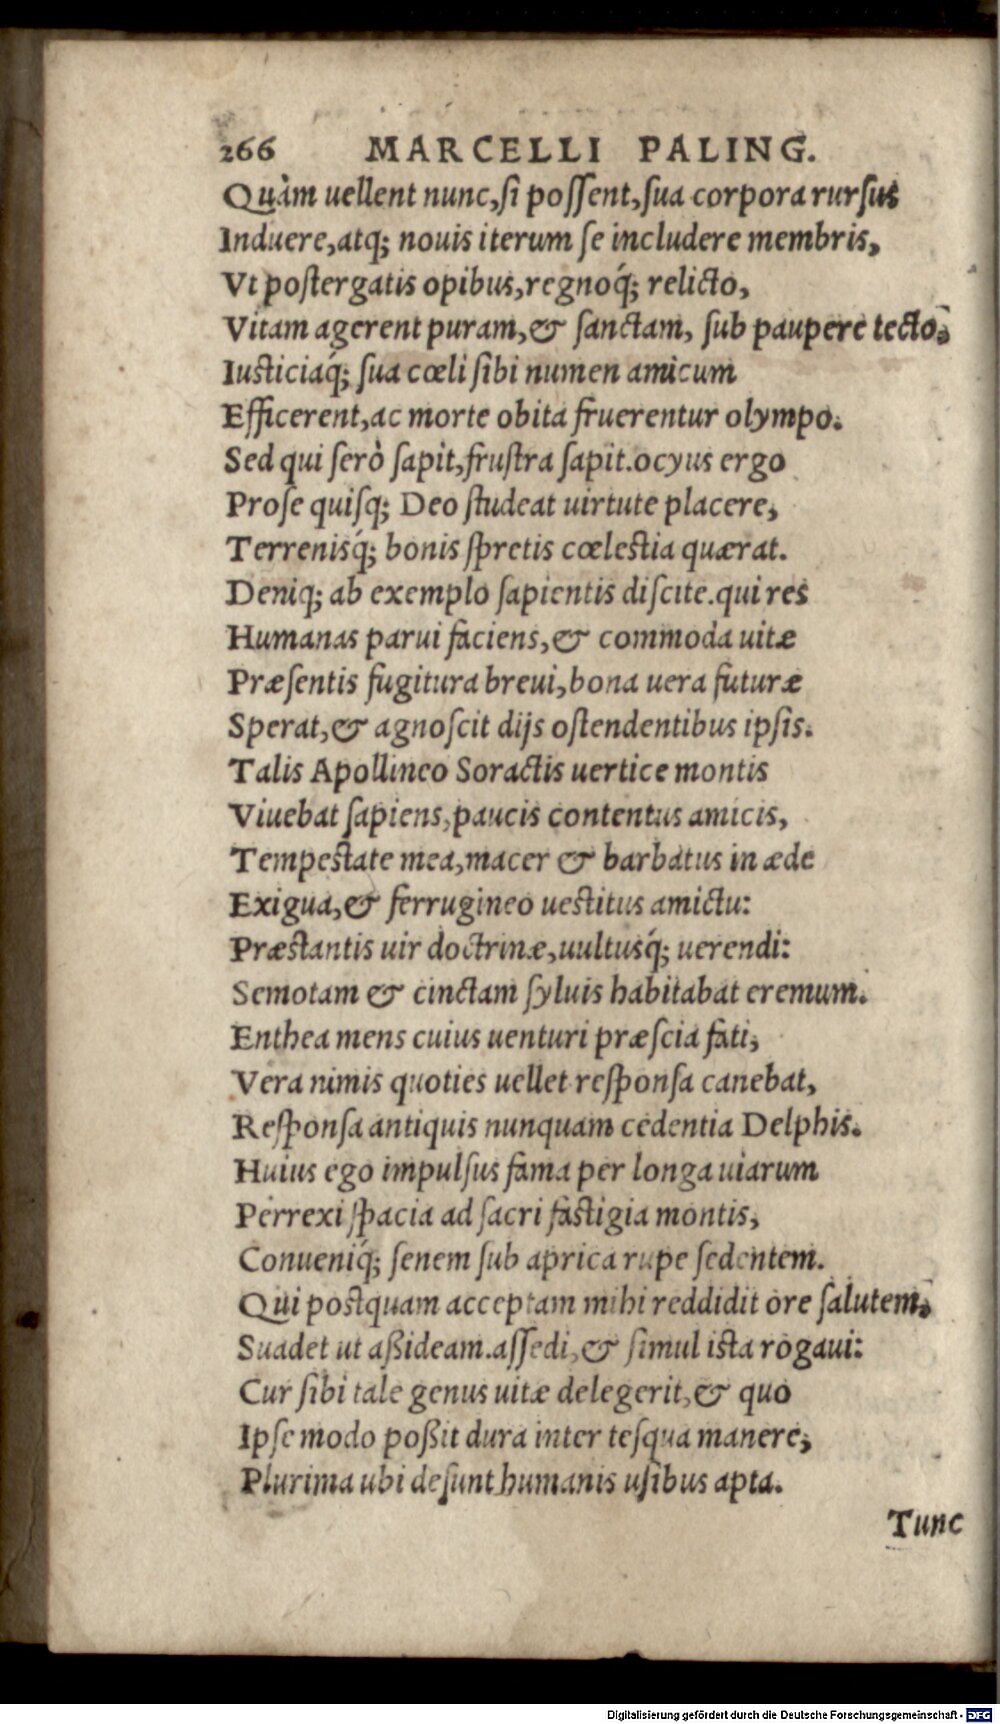 266 MARCELLI PALING.
Quàm uellent nunc,ſi poſſent,ſua corpora rurſus
Induere,atq; nouis iterum ſe includere membris,
Vt poſtergatis opibus,regnoq́; relicto,
Vitam agerent puram,& ſanctam, ſub paupere tecto.
Iusticiaq́; ſua cœli ſibi numen amicum
Efficerent,ac morte obita fruerentur olympo.
Sed qui ſerò ſapit,fruſtra ſapit.ocyus ergo
Pro ſe quiſq; Deo ſtudeat uirtute placere,
Terrenisq́; bonis ſpretis cœlestia quærat.
Deniq; ab exemplo ſapientis diſcite.qui res
Humanas parui faciens,& commoda uitæ
Præſentis fugitura breui,bona uera futuræ
Sperat,& agnoſcit dijs oſtendentibus ipſis.
Talis Apollineo Soractis uertice montis
Viuebat ſapiens,paucis contentus amicis,
Tempestate mea,macer & barbatus in æde
Exigua,& ferrugineo uestitus amictu:
Præstantis uir doctrinæ,uultusq́; uerendi:
Semotam & cinctam ſyluis habitabat eremum.
Enthea mens cuius uenturi præſcia fati,
Vera nimis quoties uellet reſponſa canebat,
Reſponſa antiquis nunquam cedentia Delphis.
Huius ego impulſus fama per longa uiarum
Perrexi ſpacia ad ſacri fastigia montis,
Conueniq́; ſenem ſub aprica rupe ſedentem.
Qui postquam acceptam mihi reddidit ore ſalutem,
Suadet ut aßideam.aſſedi,& ſimul ista rogaui:
Cur ſibi tale genus uitæ delegerit,& quo
Ipſe modo poßit dura inter teſqua manere,
Plurima ubi deſunt humanis uſibus apta.
Tunc
Digitalisierung gefördert durch die Deutsche Forschungsgemeinschaft - DFG